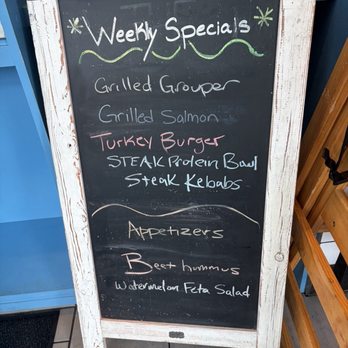 Weekly Specials
Grilled Grouper
Grilled Salmon
Turkey Burger
STEAK Protein Bowl
Steak Kebabs
Appetizers
Beet hummus
Watermelon Feta Salad